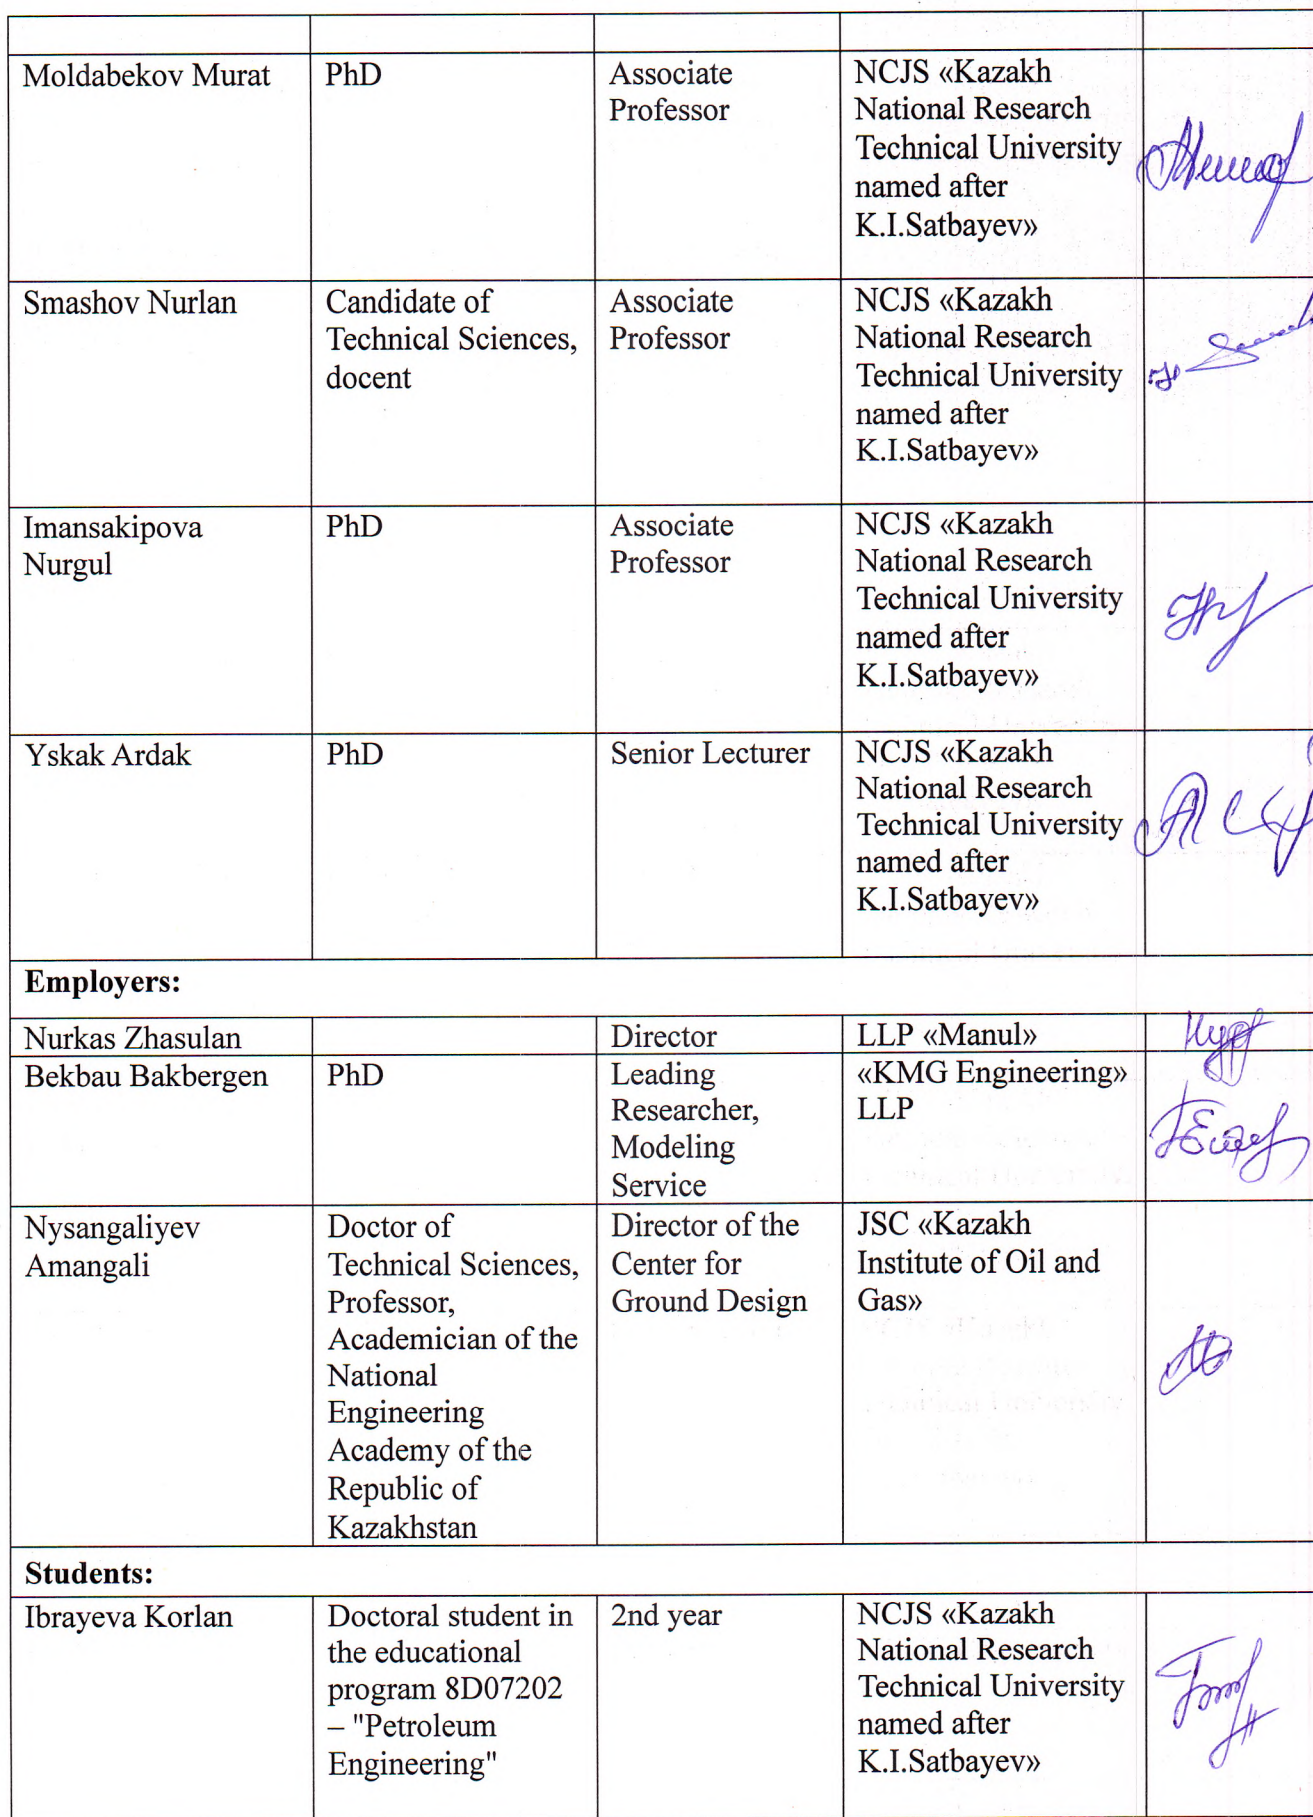 Moldabekov Murat
PhD
Associate
Professor
NCJS «Kazakh
National Research
Technical University
named after
K.I.Satbayev»
Smashov Nurlan
Candidate of
Technical Sciences,
docent
Associate
Professor
NCJS «Kazakh
National Research
Technical University
named after
K.I.Satbayev»
Imansakipova
Nurgul
PhD
Associate
Professor
NCJS «Kazakh
National Research
Technical University
named after
K.I.Satbayev»
Yskak Ardak
PhD
Senior Lecturer
NCJS «Kazakh
National Research
Technical University
named after
K.I.Satbayev»
Employers:
Nurkas Zhasulan
Director
LLP «Manul»
Bekbau Bakbergen
PhD
Leading
Researcher,
Modeling
Service
«KMG Engineering»
LLP
Nysangaliyev
Amangali
Doctor of
Technical Sciences,
Professor,
Academician of the
National
Engineering
Academy of the
Republic of
Kazakhstan
Director of the
Center for
Ground Design
JSC «Kazakh
Institute of Oil and
Gas»
Students:
Ibrayeva Korlan
Doctoral student in
the educational
program 8D07202
– "Petroleum
Engineering"
2nd year
NCJS «Kazakh
National Research
Technical University
named after
K.I.Satbayev»